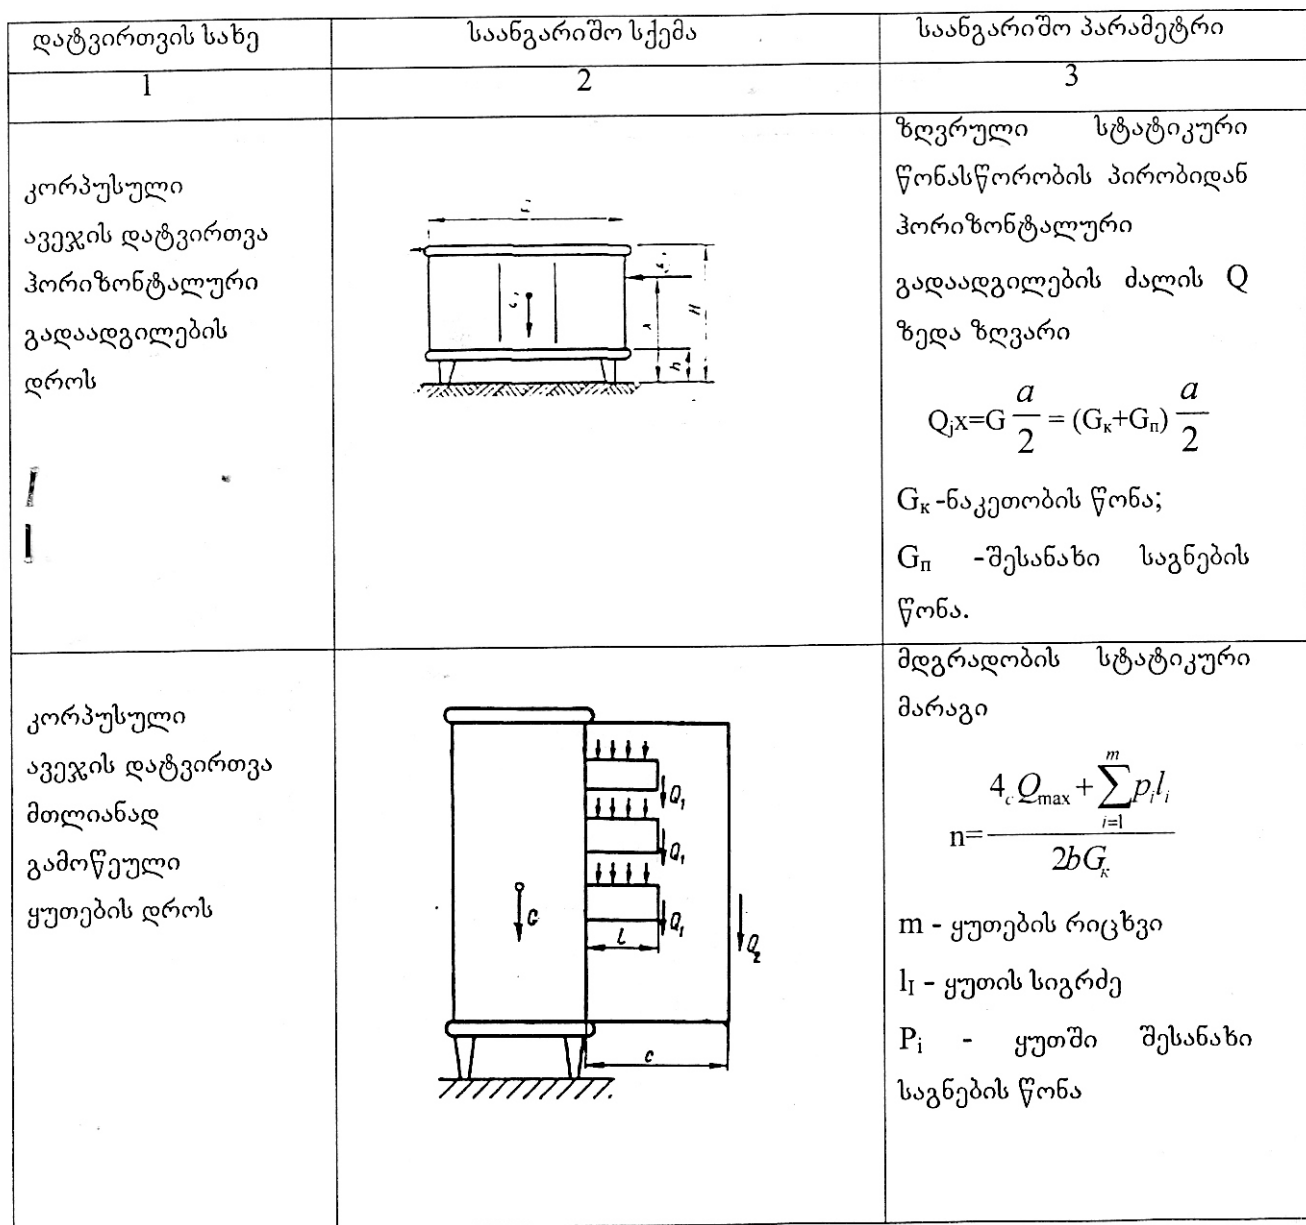 დატვირთვის სახე
საანგარიშო სქემა
საანგარიშო პარამეტრი
1
2
3
კორპუსული
ავეჯის დატვირთვა
ჰორიზონტალური
გადაადგილების
დროს
H
h
ზღვრული სტატიკური
წონასწორობის პირობიდან
ჰორიზონტალური
გადაადგილების ძალის Q
ზედა ზღვარი
Qjx=G a/2 = (Gк+Gп) a/2
Gк -ნაკეთობის წონა;
Gп -შესანახი საგნების
წონა.
კორპუსული
ავეჯის დატვირთვა
მთლიანად
გამოწეული
ყუთების დროს
Q1
Q1
Q1
G
l
Q2
c
მდგრადობის სტატიკური
მარაგი
n= (4cQmax + ∑_{i=1}^{m} pili) / 2bGк
m - ყუთების რიცხვი
lI - ყუთის სიგრძე
Pi - ყუთში შესანახი
საგნების წონა